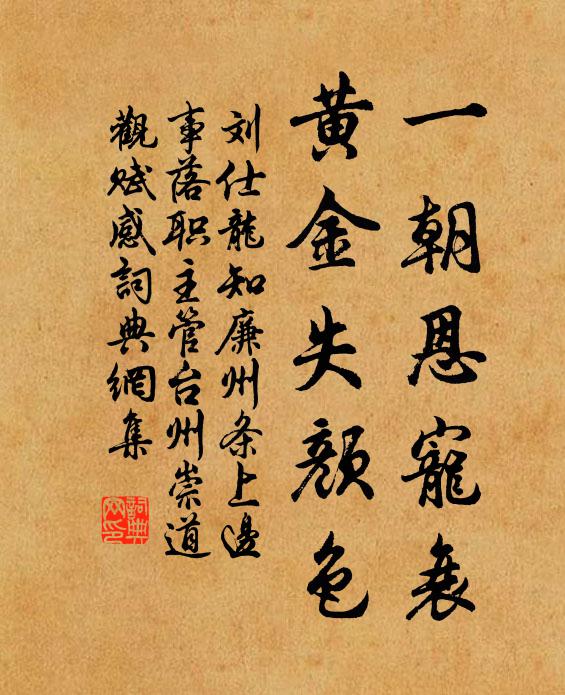 一朝恩寵衰
黄金失顔色
刘仕龍知廉州条上邊
事落职主管台州崇道
觀赋感詞典網集
詞典网印